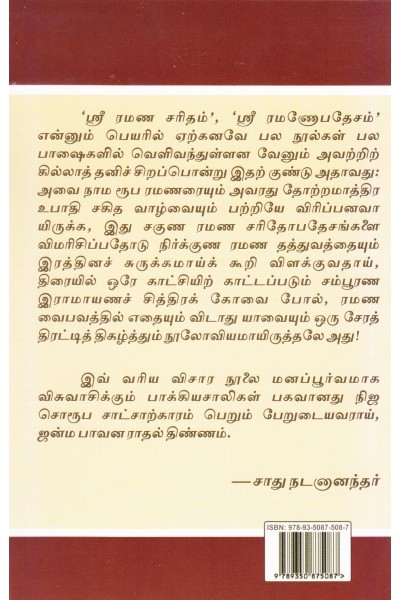 ‘ஸ்ரீ ரமண சரிதம்’, ‘ஸ்ரீ ரமணோபதேசம்’
என்னும் பெயரில் ஏற்கனவே பல நூல்கள் பல
பாஷைகளில் வெளிவந்துள்ளன வேனும் அவற்றிற்
கில்லாத் தனிச் சிறப்பொன்று இதற் குண்டு அதாவது:
அவை நாம ரூப ரமணரையும் அவரது தோற்றமாத்திர
உபாதி சகித வாழ்வையும் பற்றியே விரிப்பனவா
யிருக்க, இது சகுண ரமண சரிதோபதேசங்களை
விமரிசிப்பதோடு நிர்க்குண ரமண தத்துவத்தையும்
இரத்தினச் சுருக்கமாய்க் கூறி விளக்குவதாய்,
திரையில் ஒரே காட்சியிற் காட்டப்படும் சம்பூரண
இராமாயணச் சித்திரக் கோவை போல், ரமண
வைபவத்தில் எதையும் விடாது யாவையும் ஒரு சேரத்
திரட்டித் திகழ்த்தும் நூலோவியமாயிருத்தலே அது!
இவ் வரிய விசார நூலை மனப்பூர்வமாக
விசுவாசிக்கும் பாக்கியசாலிகள் பகவானது நிஜ
சொரூப சாட்சாற்காரம் பெறும் பேறுடையவராய்,
ஜன்ம பாவன ராதல் திண்ணம்.
—சாது நடனானந்தர்
ISBN: 978-93-5087-508-7
9 789350 875087 >